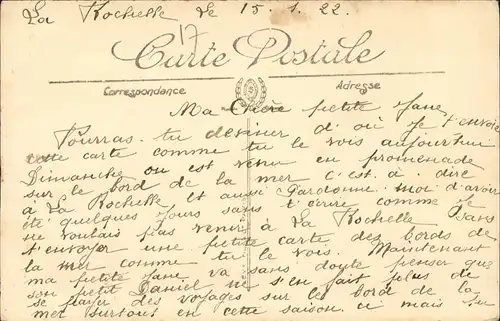 La Rochelle le 15.1.22.
17
Carte Postale
Correspondance
Adresse
Ma Chère petite Jane
Pourras tu deviner d'où je t'envoie
cette carte comme tu le vois aujourd'hui
Dimanche on est venu en promenade
sur le bord de la mer c'est à dire
à La Rochelle et aussi Pardonne moi d'avoir
été quelques jours sans t'écrire comme je
ne voulais pas venir à La Rochelle sans
t'envoyer une petite carte des bords de
la mer comme tu le vois. Maintenant
ma petite Jane va sans doute penser que
son petit Daniel ne s'en fait plus de
se payer des voyages sur le bord de la
mer surtout en cette saison ci mais tu